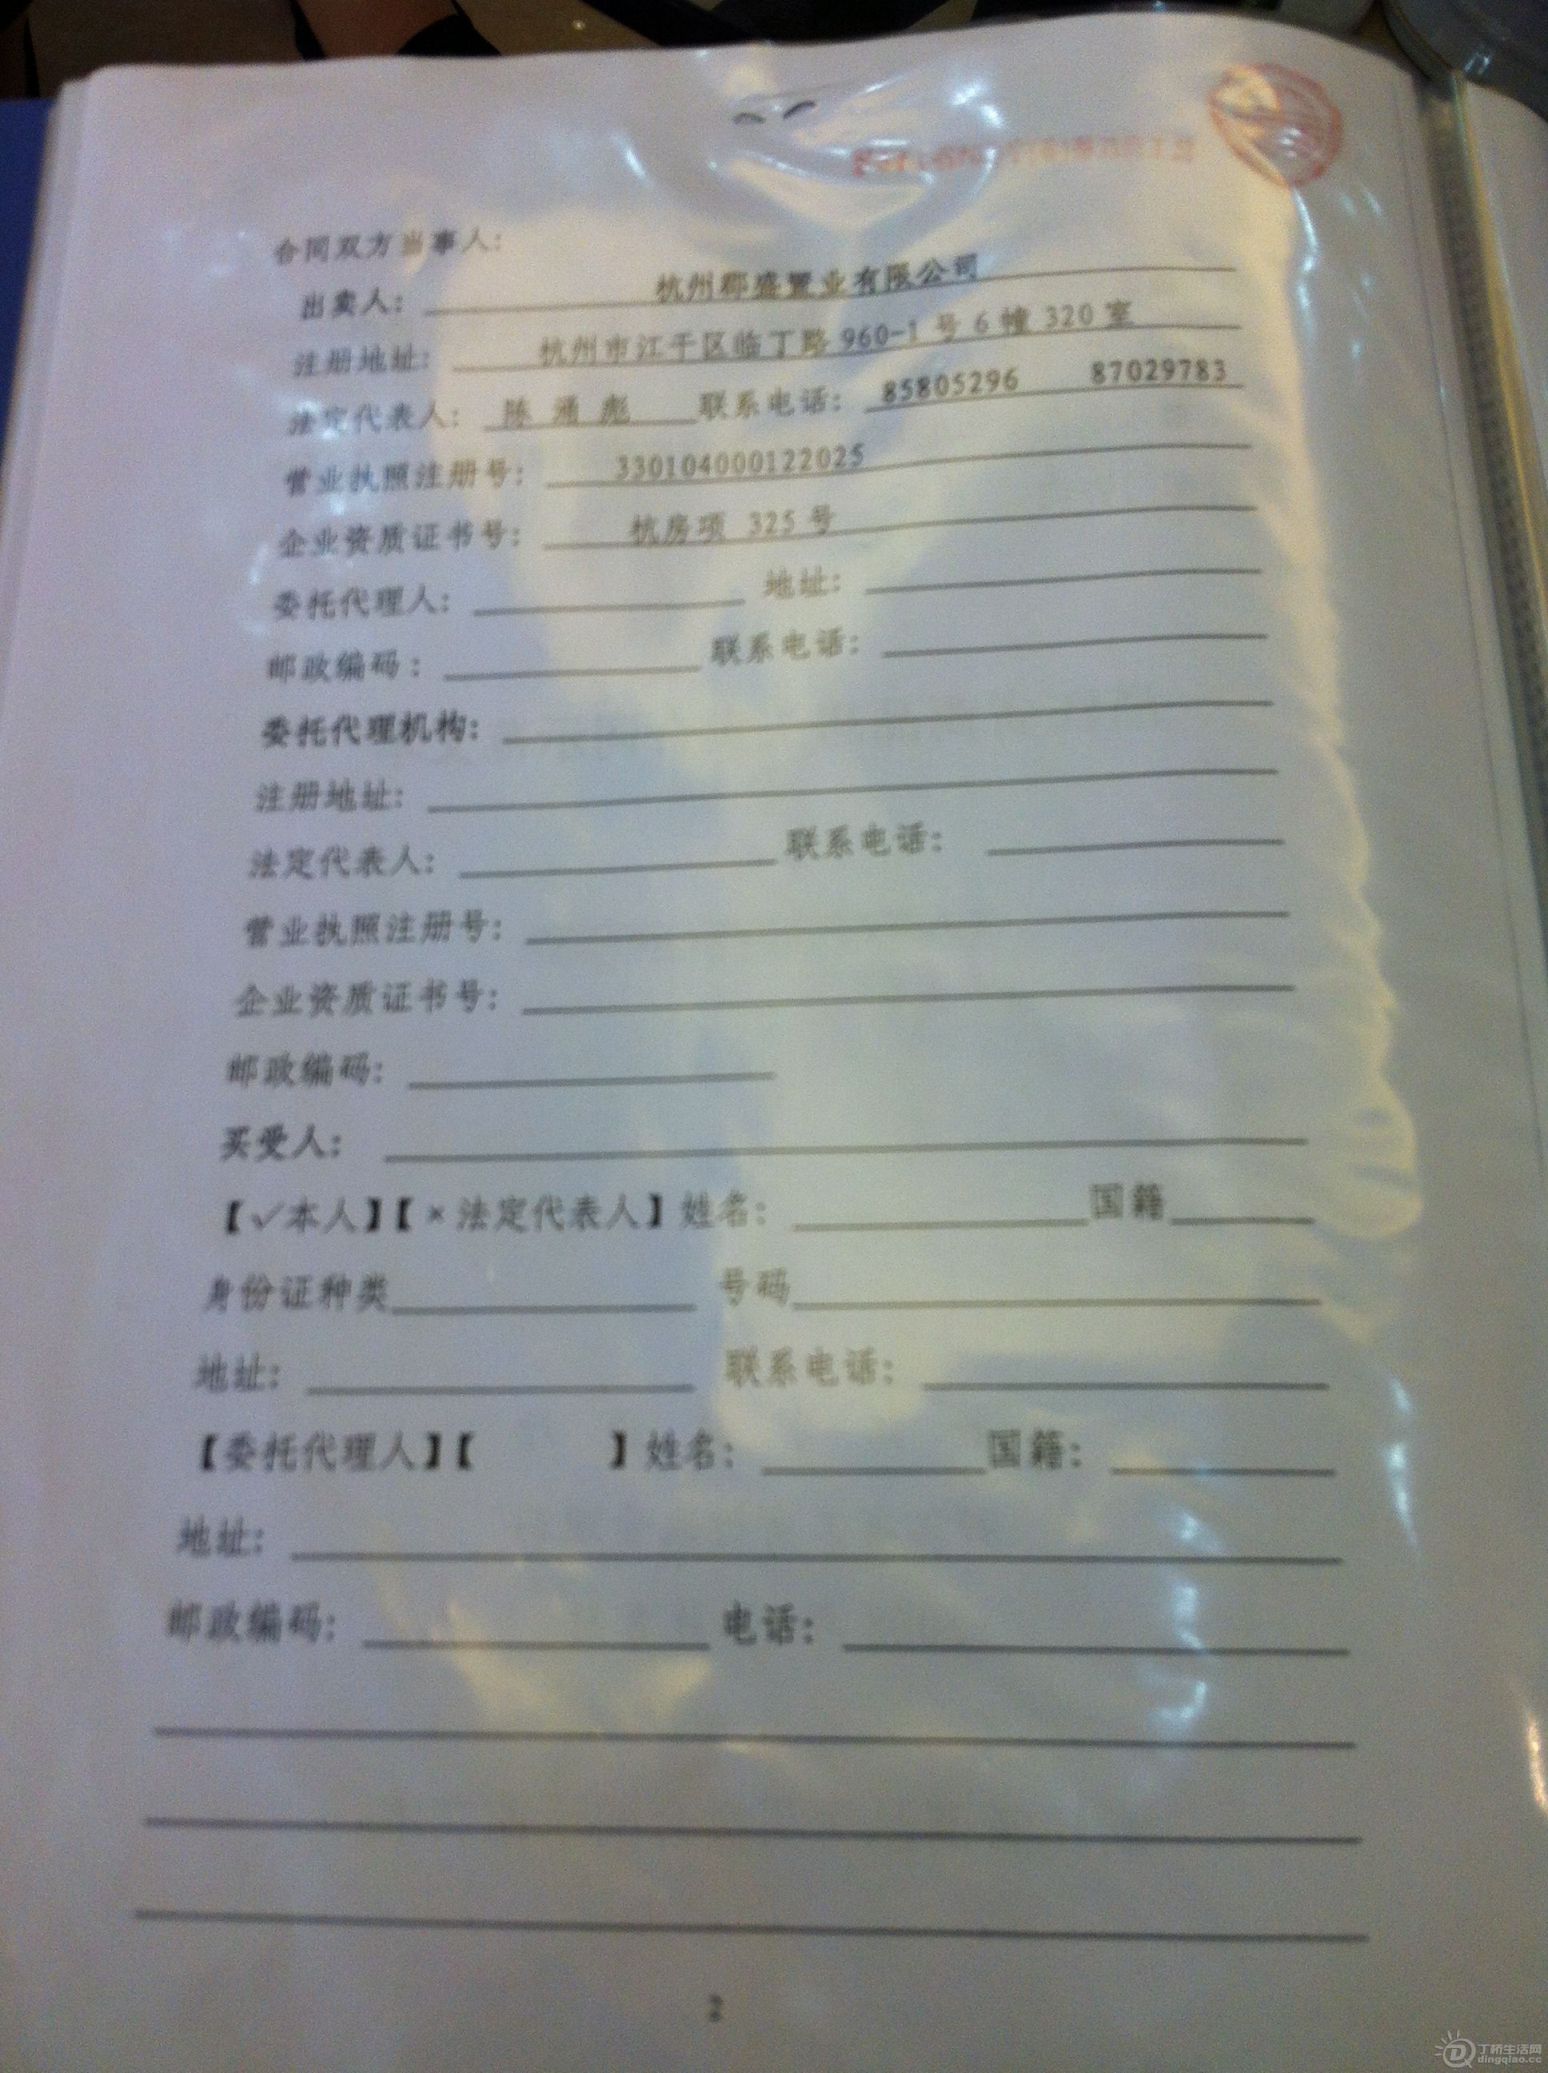 合同双方当事人：
出卖人： 杭州郡盛置业有限公司
注册地址： 杭州市江干区临丁路 960-1 号 6 幢 320 室
法定代表人： 陈 通 彪 联系电话： 85805296 87029783
营业执照注册号： 330104000122025
企业资质证书号： 杭房项 325 号
委托代理人： 地址：
邮政编码： 联系电话：
委托代理机构：
注册地址：
法定代表人： 联系电话：
营业执照注册号：
企业资质证书号：
邮政编码：
买受人：
【√本人】【×法定代表人】姓名： 国籍
身份证种类 号码
地址： 联系电话：
【委托代理人】【 】姓名： 国籍：
地址：
邮政编码： 电话：
2
丁桥生活网
dingqiao.cc